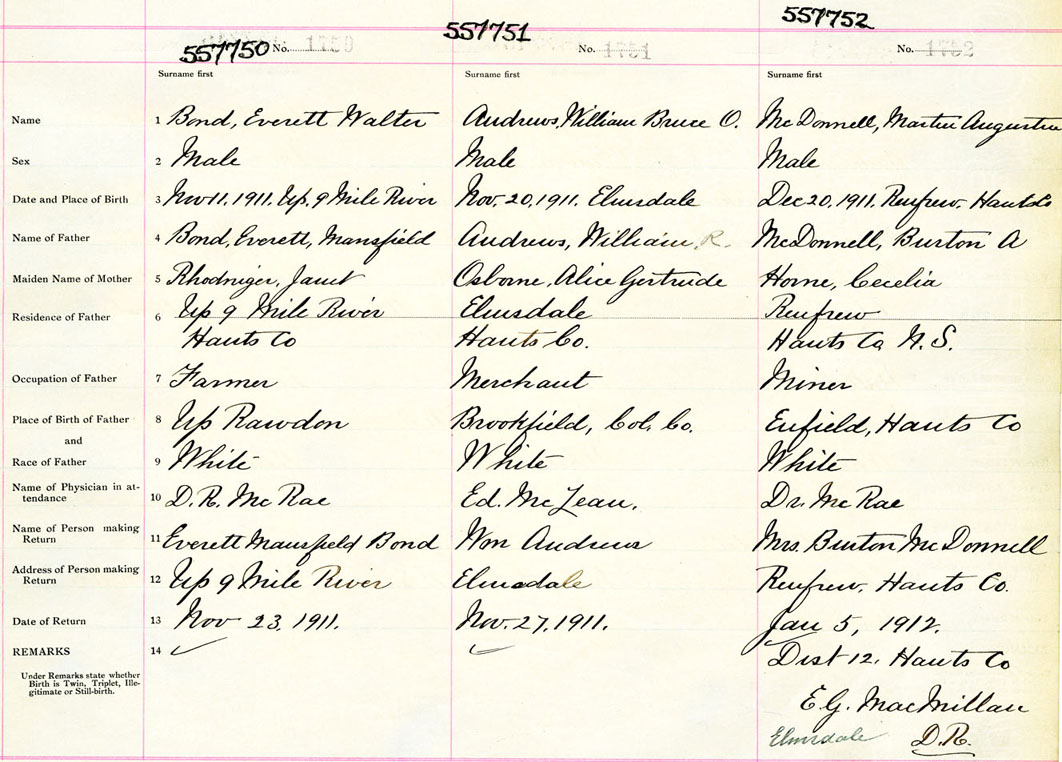 557750 No. 1750 557751 No. 1751 557752 No. 1752
Surname first Surname first Surname first
Name 1 Bond, Everett Walter Andrews, William Bruce O. McDonnell, Martin Augustin
Sex 2 Male Male Male
Date and Place of Birth 3 Nov 11, 1911. Up. 9 Mile River Nov. 20, 1911. Elmsdale Dec 20, 1911. Renfrew. Hants Co
Name of Father 4 Bond, Everett, Mansfield Andrews, William, R. McDonnell, Burton A
Maiden Name of Mother 5 Rhodniger, Janet Osborne, Alice Gertrude Horne, Cecelia
Residence of Father 6 Up 9 Mile River Elmsdale Renfrew
Hants Co Hants Co. Hants Co, N.S.
Occupation of Father 7 Farmer Merchant Miner
Place of Birth of Father 8 Up Rawdon Brookfield, Col. Co. Enfield, Hants Co
and
Race of Father 9 White White White
Name of Physician in at-
tendance 10 D.R. McRae Ed. McLean. Dr. McRae
Name of Person making
Return 11 Everett Mansfield Bond Wm Andrews Mrs. Burton McDonnell
Address of Person making
Return 12 Up 9 Mile River Elmsdale Renfrew. Hants Co.
Date of Return 13 Nov 23, 1911. Nov. 27, 1911. Jan 5, 1912.
REMARKS 14 Dist 12. Hants Co
Under Remarks state whether
Birth is Twin, Triplet, Ille-
gitimate or Still-birth.
E.G. MacMillan
Elmsdale D.R.